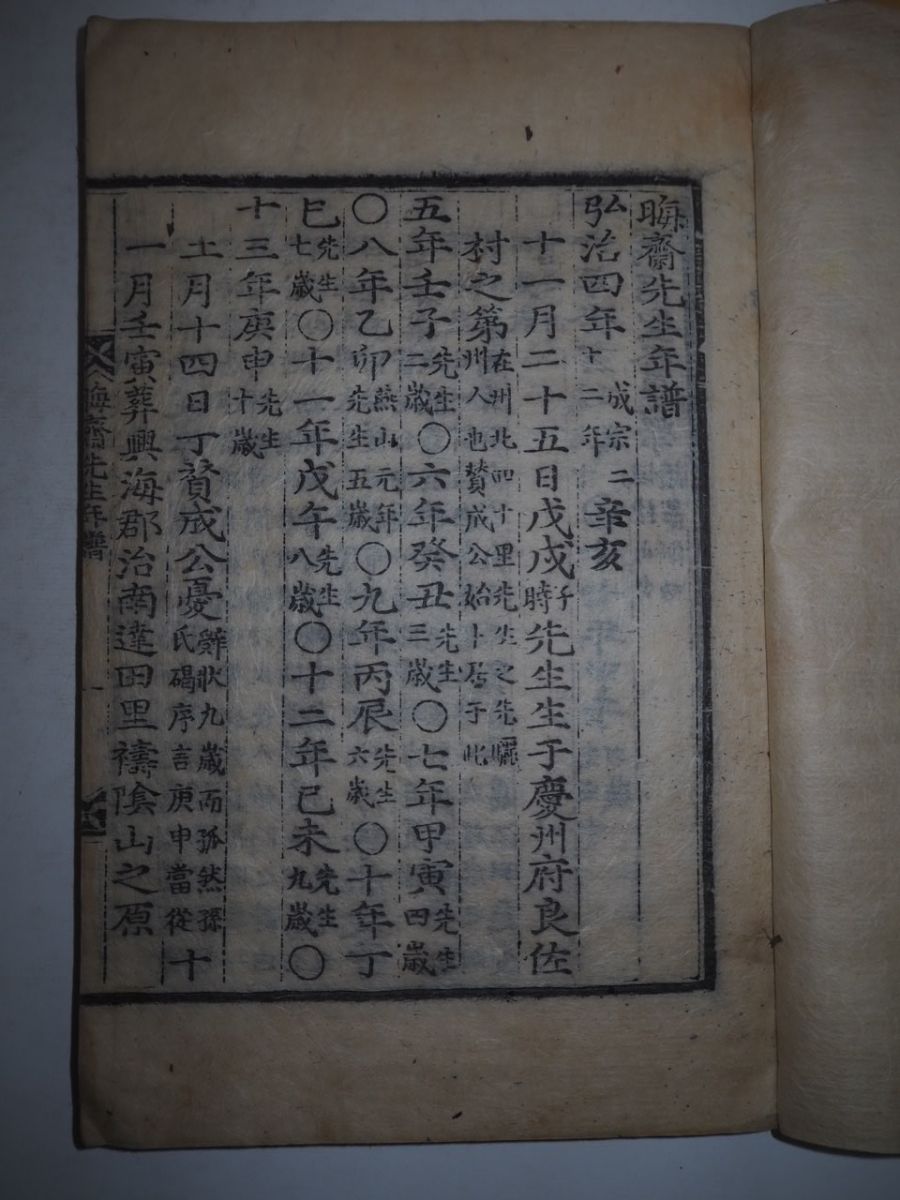 晦齋先生年譜
弘治四年成宗二十二年辛亥
十一月二十五日戊戌子時先生生于慶州府良佐
村之第在州北四十里先生之先驪州人也贊成公始卜居于此
五年壬子先生二歲〇六年癸丑先生三歲〇七年甲寅先生四歲
〇八年乙卯燕山元年先生五歲〇九年丙辰先生六歲〇十年丁
巳先生七歲〇十一年戊午先生八歲〇十二年己未先生九歲〇
十三年庚申先生十歲
土月十四日丁贊成公憂辭狀九歲而孤然孫氏碣序言庚申當從十
一月壬寅葬興海郡治南達田里禱陰山之原
晦齋先生年譜
一